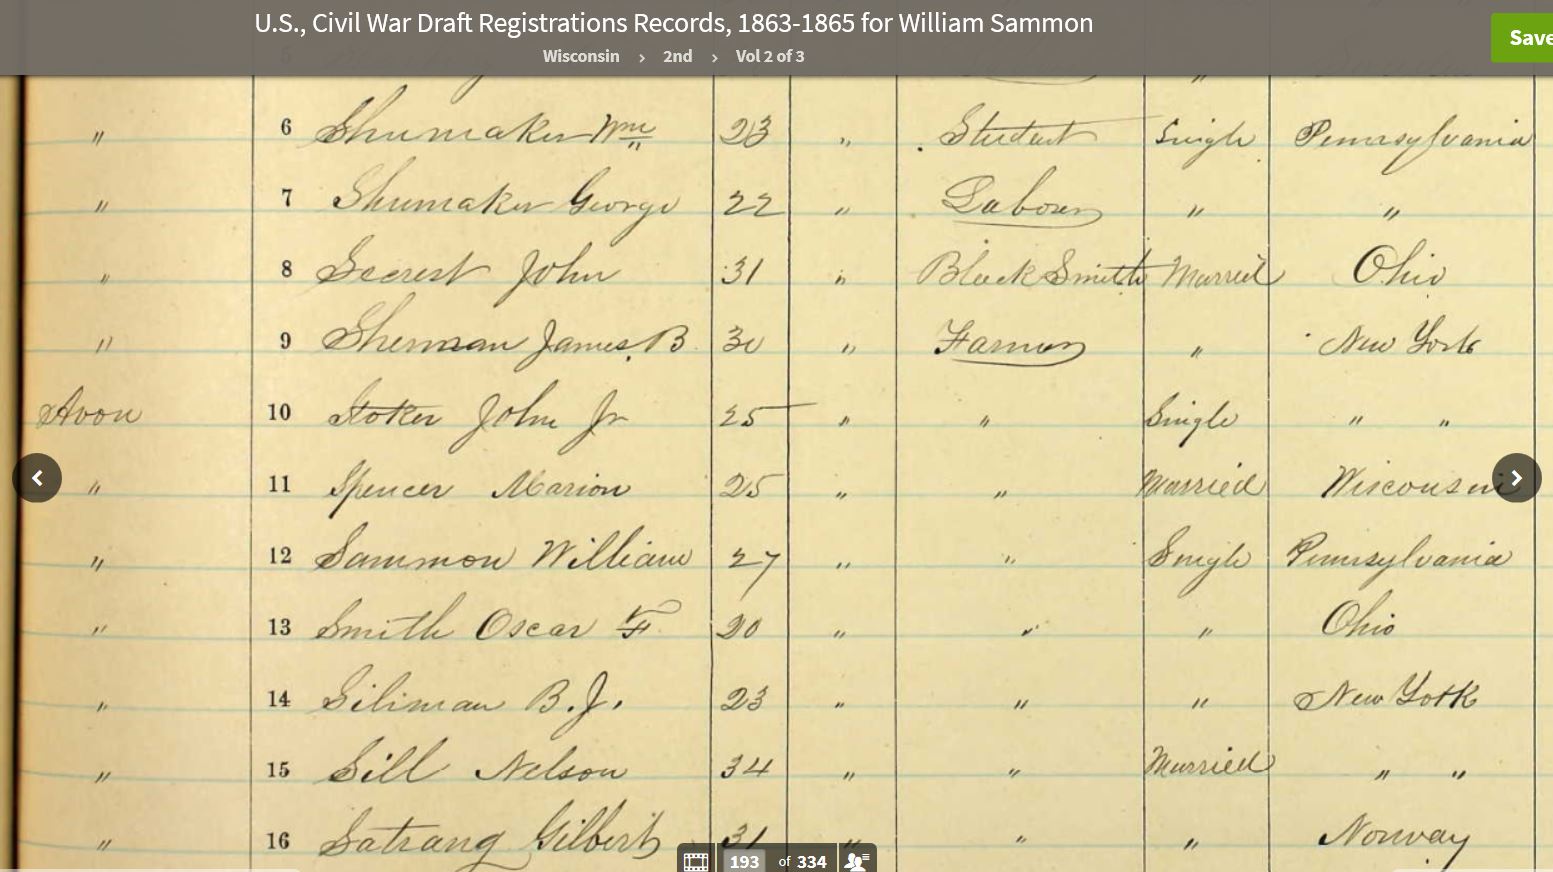 U.S., Civil War Draft Registrations Records, 1863-1865 for William Sammon
Save
Wisconsin › 2nd › Vol 2 of 3
" 6 Shumaker Wm 23 " Student Single Pennsylvania
" 7 Shumaker George 22 " Laborer " "
" 8 Secrest John 31 " Black Smith Married Ohio
" 9 Sherman James B 30 " Farmer " New York
Avon 10 Stoker John Jr 25 " " Single " "
" 11 Spencer Marion 25 " " Married Wisconsin
" 12 Sammon William 27 " " Single Pennsylvania
" 13 Smith Oscar F. 20 " " " Ohio
" 14 Siliman B. J. 23 " " " New York
" 15 Sill Nelson 34 " " Married " "
" 16 Satrang Gilbert 31 " " " Norway
193 of 334